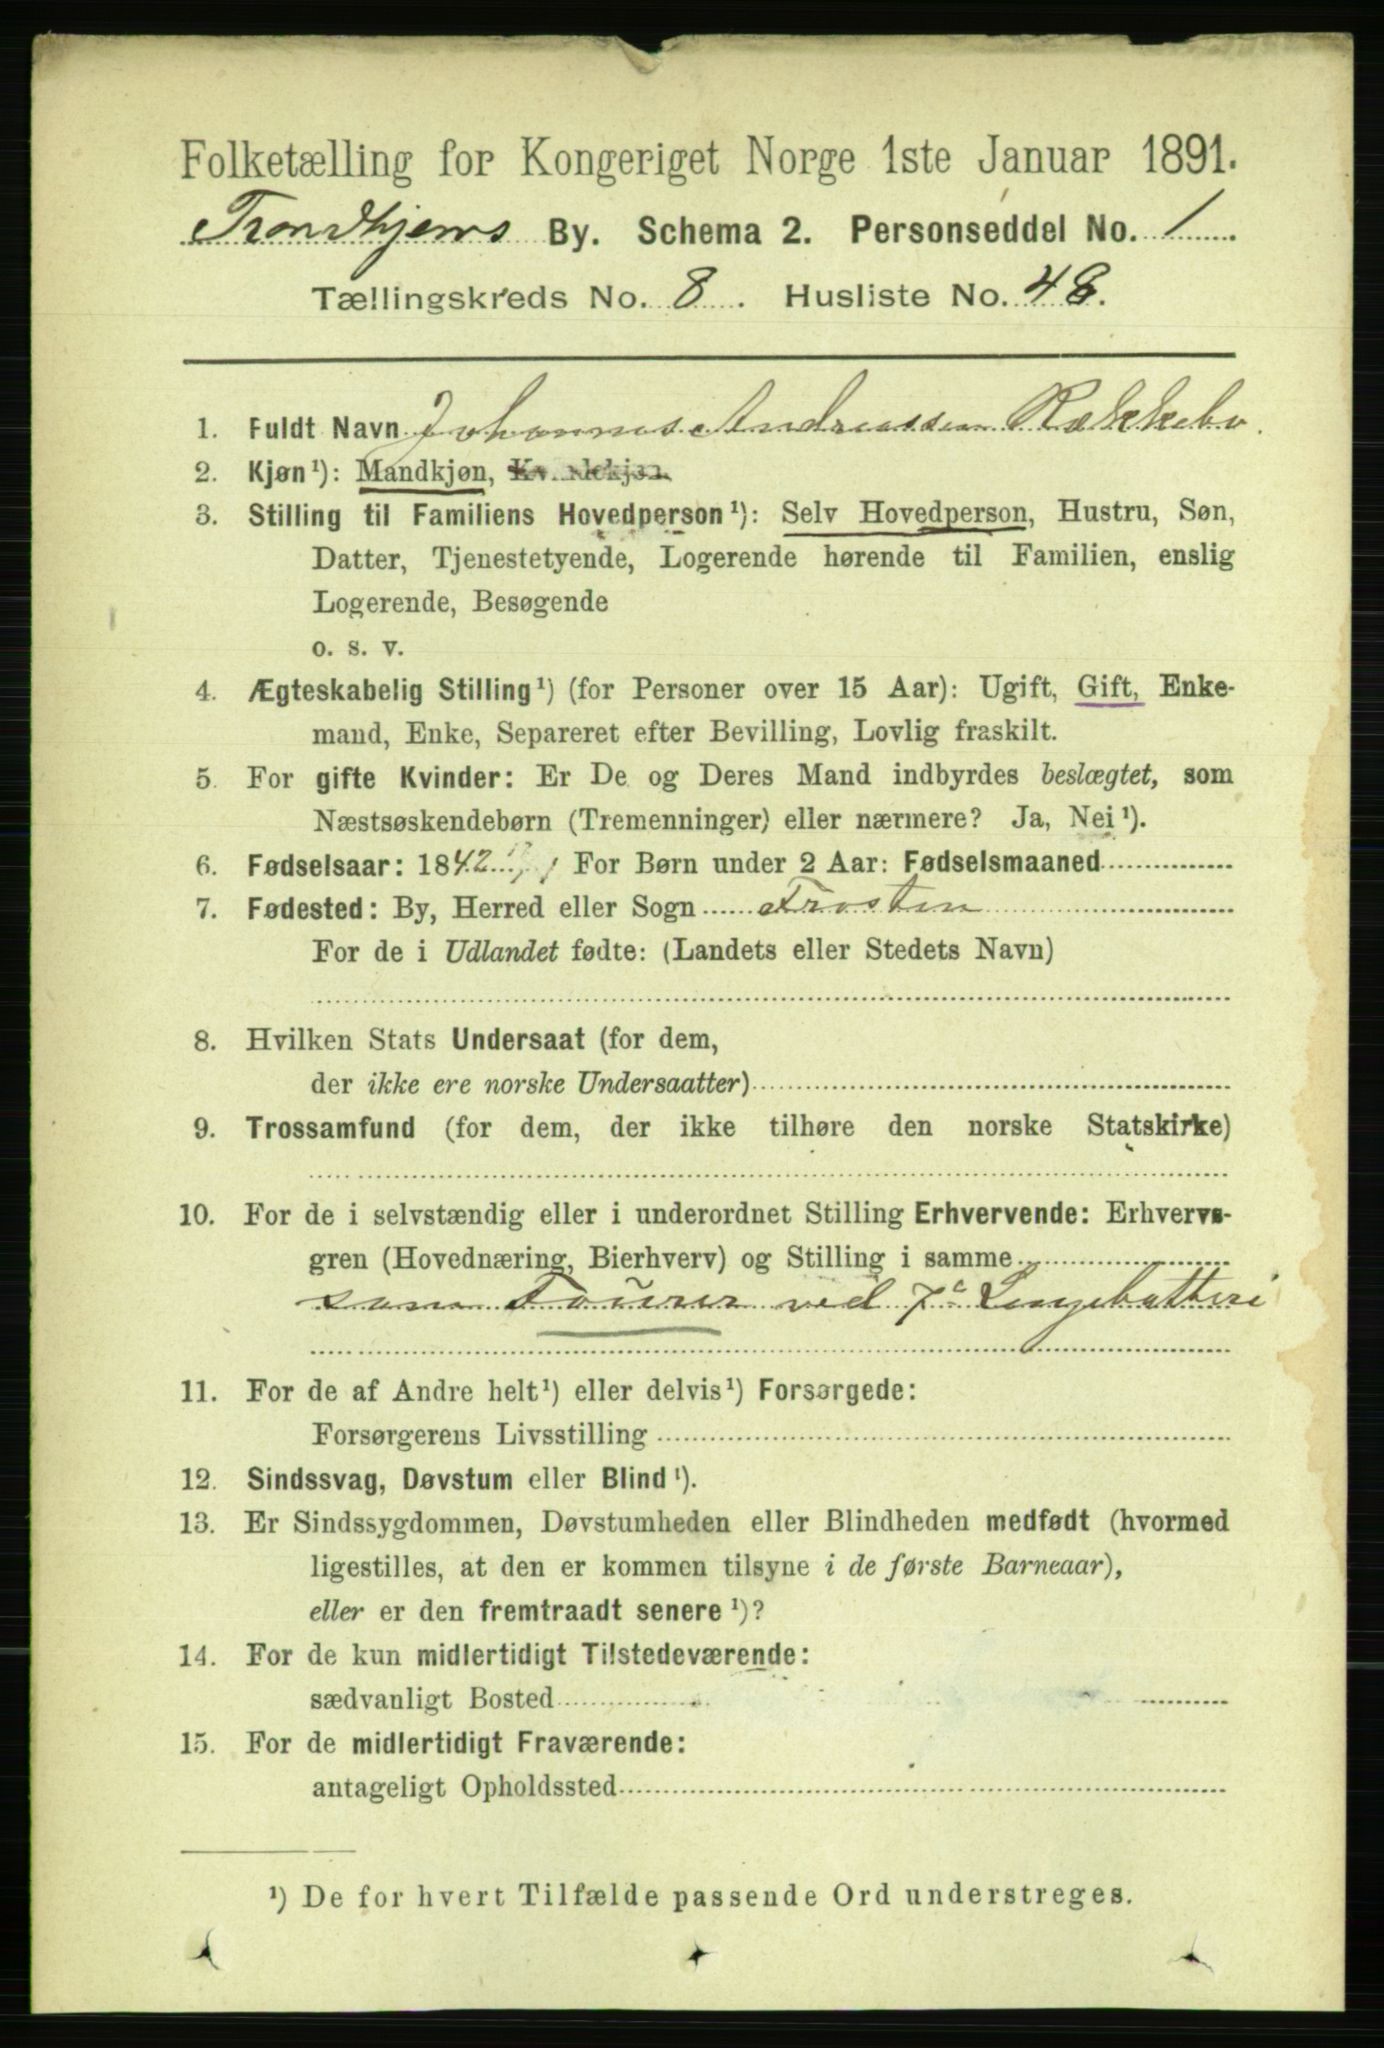 Folketælling for Kongeriget Norge 1ste Januar 1891.
Trondhjems By. Schema 2. Personseddel No. 1
Tællingskreds No. 8. Husliste No. 48.
1. Fuldt Navn Johannes Andreassen Rækkebo.
2. Kjøn¹): Mandkjøn, Kvindekjøn
3. Stilling til Familiens Hovedperson¹): Selv Hovedperson, Hustru, Søn,
Datter, Tjenestetyende, Logerende hørende til Familien, enslig
Logerende, Besøgende
o. s. v.
4. Ægteskabelig Stilling¹) (for Personer over 15 Aar): Ugift, Gift, Enke-
mand, Enke, Separeret efter Bevilling, Lovlig fraskilt.
5. For gifte Kvinder: Er De og Deres Mand indbyrdes beslægtet, som
Næstsøskendebørn (Tremenninger) eller nærmere? Ja, Nei¹).
6. Fødselsaar: 1842 For Børn under 2 Aar: Fødselsmaaned
7. Fødested: By, Herred eller Sogn Frosten
For de i Udlandet fødte: (Landets eller Stedets Navn)
8. Hvilken Stats Undersaat (for dem,
der ikke ere norske Undersaatter)
9. Trossamfund (for dem, der ikke tilhøre den norske Statskirke)
10. For de i selvstændig eller i underordnet Stilling Erhvervende: Erhvervs-
gren (Hovednæring, Bierhverv) og Stilling i samme
som Fourer ved 7de Linjebatteri
11. For de af Andre helt¹) eller delvis¹) Forsørgede:
Forsørgerens Livsstilling
12. Sindssvag, Døvstum eller Blind¹).
13. Er Sindssygdommen, Døvstumheden eller Blindheden medfødt (hvormed
ligestilles, at den er kommen tilsyne i de første Barneaar),
eller er den fremtraadt senere¹)?
14. For de kun midlertidigt Tilstedeværende:
sædvanligt Bosted
15. For de midlertidigt Fraværende:
antageligt Opholdssted
¹) De for hvert Tilfælde passende Ord understreges.